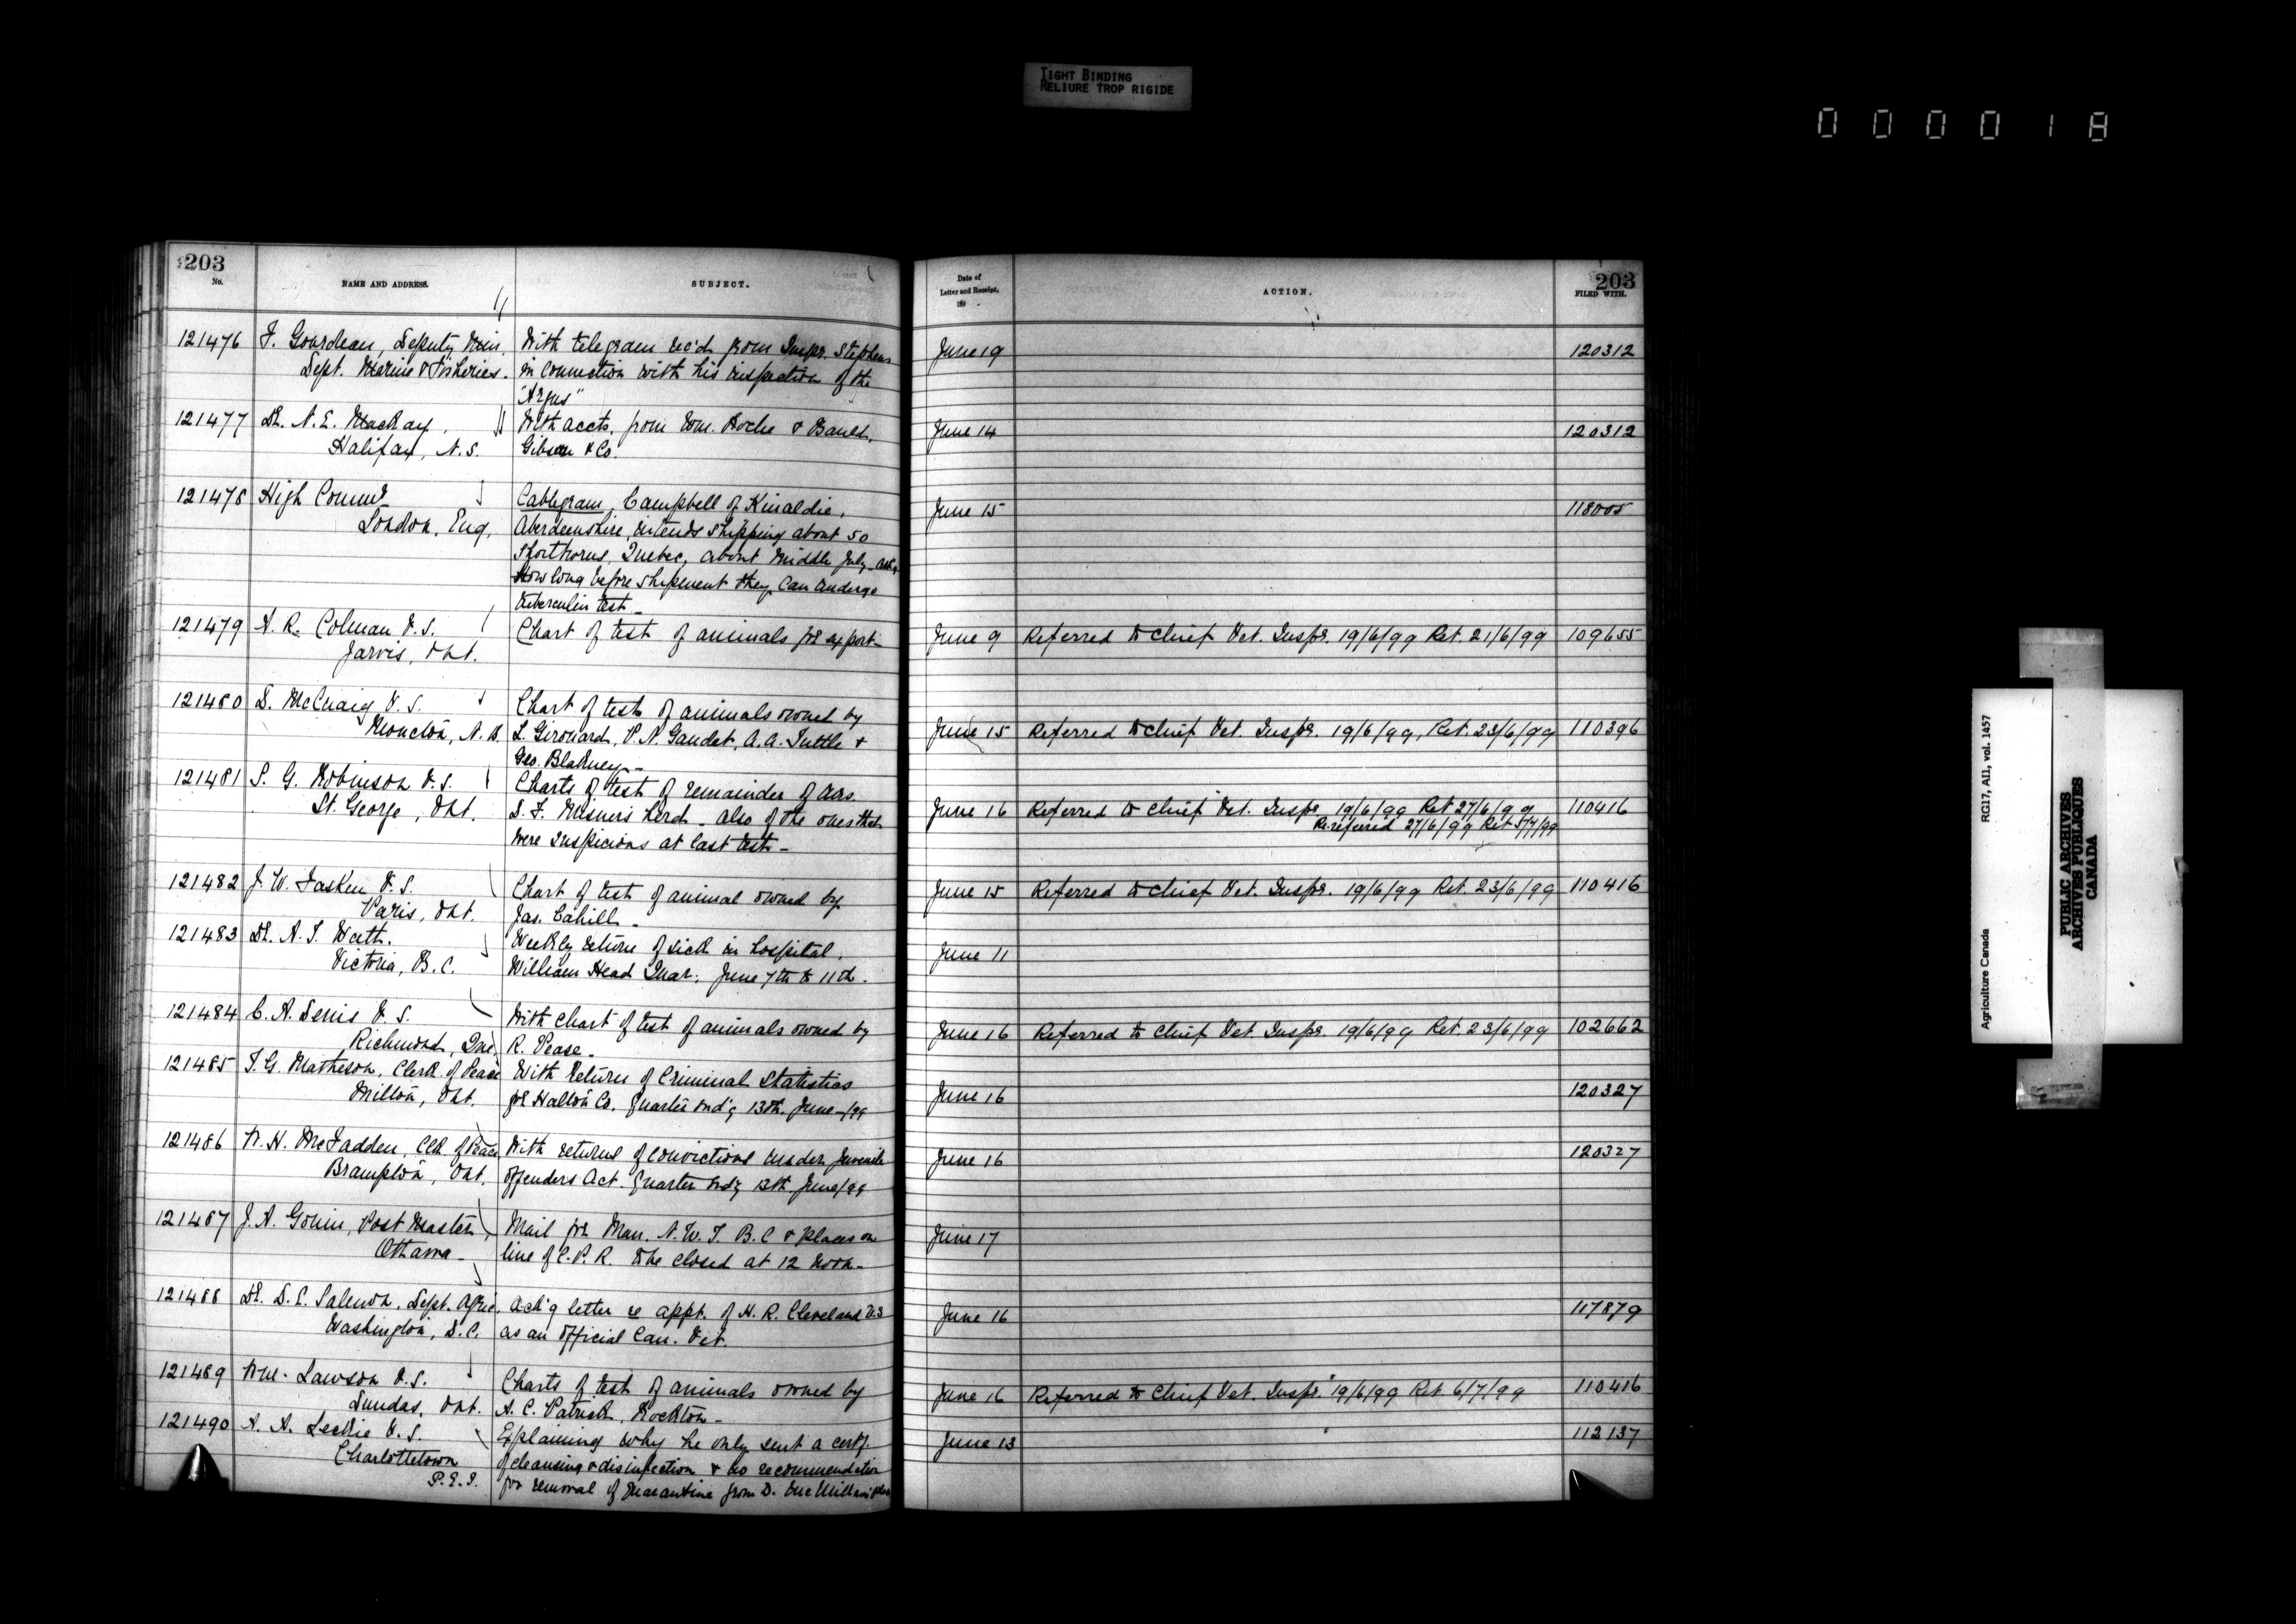 TIGHT BINDING
RELIURE TROP RIGIDE
000018
203
No.
NAME AND ADDRESS.
SUBJECT.
121476 F. Gourdeau, Deputy Min.
Dept. Marine & Fisheries.
With telegram rec'd from Inspr. Stephens
in connection with his inspection of the
"Argus"
121477 Dr. N. E. MacKay,
Halifax, N.S.
With accts. from Wm. Roche & Bauld,
Gibson & Co.
121478 High Commr
London, Eng.
Cablegram, Campbell of Kinaldie,
Aberdeenshire, intends shipping about 50
Shorthorns, Quebec, about Middle July
How long before shipment they can undergo
tuberculin test_
121479 H. R. Colman V.S.
Jarvis, Ont.
Chart of test of animals for export_
121480 D. McCuaig V.S.
Moncton, N.B.
Chart of test of animals owned by
L. Girouard, P. N. Gaudet, A. A. Tuttle &
Geo. Blakney_
121481 S. G. Robinson V.S.
St. George, Ont.
Charts of test of remainder of
S. F. Misner's herd_ also of the ones that
were suspicious at last test_
121482 J. W. Fasken V.S.
Paris, Ont.
Chart of test of animal owned by
Jas. Cahill_
121483 Dr. A. T. Watt.
Victoria, B.C.
Weekly return of sick in hospital,
William Head Quar. June 7th to 11th.
121484 C. A. Denis V.S.
Richmond, Que.
With chart of test of animals owned by
R. Pease_
121485 T. G. Matheson, Clerk of Peace
Milton, Ont.
With Return of Criminal Statistics
for Halton Co. Quarter end'g 13th June/99
121486 W. H. McFadden, Clk. of Peace
Brampton, Ont.
With returns of convictions under Juvenile
Offenders Act. Quarter end'g 13th June/99
121487 J. A. Gouin, Post Master,
Ottawa_
Mail for Man. N.W.T. B.C & places on
line of C.P.R. to be closed at 12 noon_
121488 Dr. D. E. Salmon, Dept. Agric.
Washington, D.C.
Ack'g letter re appt. of H. R. Cleveland V.S
as an Official Can. Vet.
121489 Wm. Lawson V.S.
Dundas, Ont.
Charts of test of animals owned by
A. C. Patrick, Rockton_
121490 A. A. Leckie V.S.
Charlottetown
P.E.I.
Explaining why he only sent a certf.
of cleansing & disinfection & no recommendation
for removal of Quarantine from D. McMillan's
Date of
Letter and Receipt,
189 .
ACTION.
203
FILED WITH.
June 19 120312
June 14 120312
June 15 118005
June 9 Referred to Chief Vet. Inspr. 19/6/99 Ret. 21/6/99 109655
June 15 Referred to Chief Vet. Inspr. 19/6/99, Ret. 23/6/99 110396
June 16 Referred to Chief Vet. Inspr. 19/6/99 Ret 27/6/99 110416
Re-referred 27/6/99 Ret 5/7/99
June 15 Referred to Chief Vet. Inspr. 19/6/99 Ret. 23/6/99 110416
June 11
June 16 Referred to Chief Vet. Inspr. 19/6/99 Ret. 23/6/99 102662
June 16 120327
June 16 120327
June 17
June 16 117879
June 16 Referred to Chief Vet. Inspr. 19/6/99 Ret 6/7/99 110416
June 13 112137
Agriculture Canada
RG17, AII, vol. 1457
PUBLIC ARCHIVES
ARCHIVES PUBLIQUES
CANADA